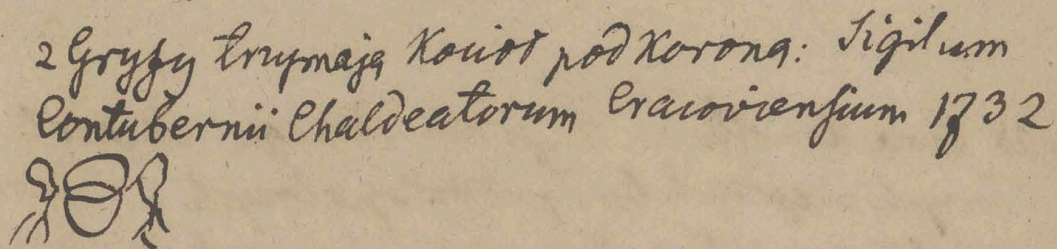 2 Gryfy trzymają Kocioł pod Koroną: Sigilum
Contubernii Chaldeatorum Cracoviensium 1732